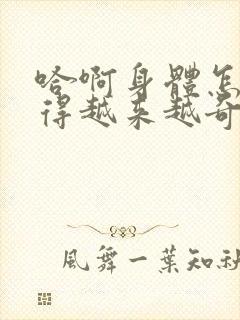 哈啊身體怎
得越来越奇
風舞一葉知秋